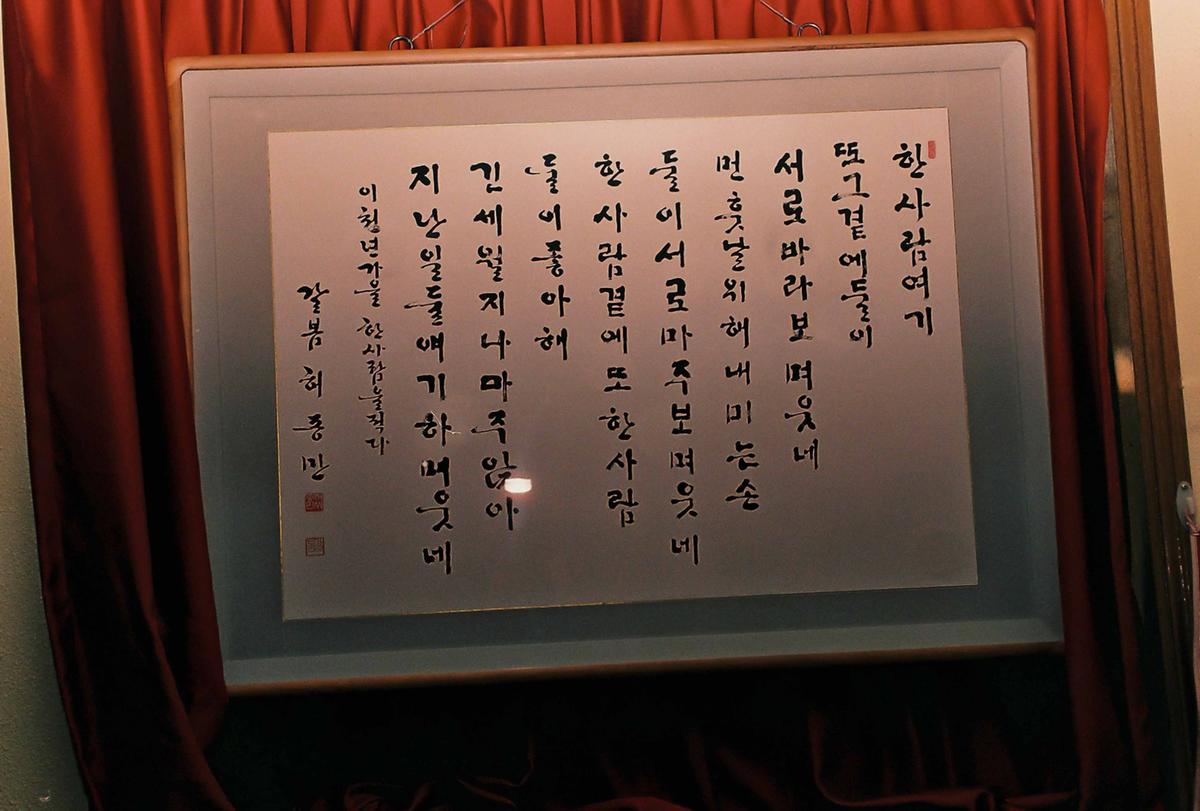 한사람여기
또그곁에둘이
서로바라보며웃네
먼훗날위해내미는손
둘이서로마주보며웃네
한사람곁에또한사람
둘이좋아해
긴세월지나마주앉아
지난일들얘기하며웃네
이천년가을 한사람을적다
갈봄 허풍만